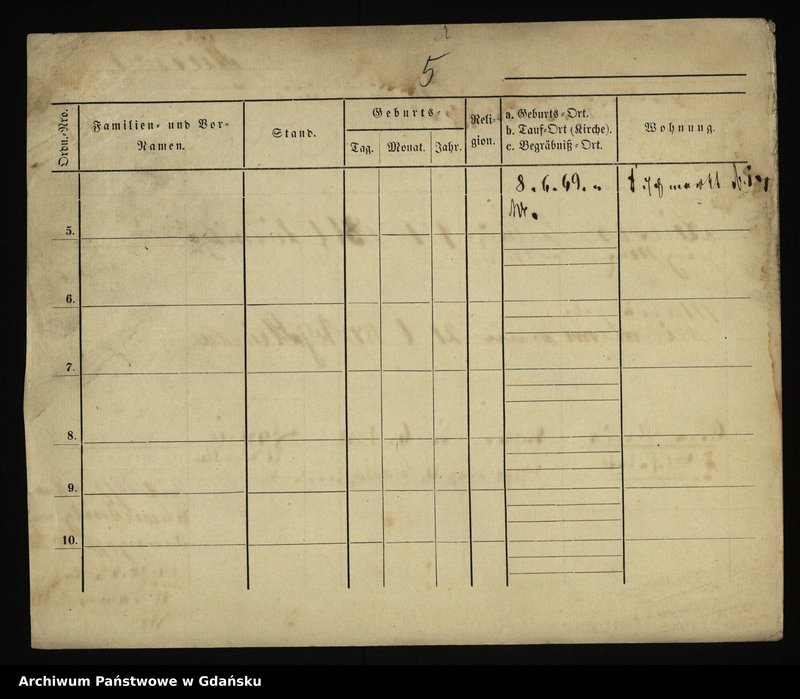 5
Ordn.-Nro.
Familien- und Vor-
Namen.
Stand.
Geburts-
Tag.
Monat.
Jahr.
Reli-
gion.
a. Geburts-Ort.
b. Tauf-Ort (Kirche).
c. Begräbniß-Ort.
Wohnung.
8. 6. 69.
5.
6.
7.
8.
9.
10.
Archiwum Państwowe w Gdańsku